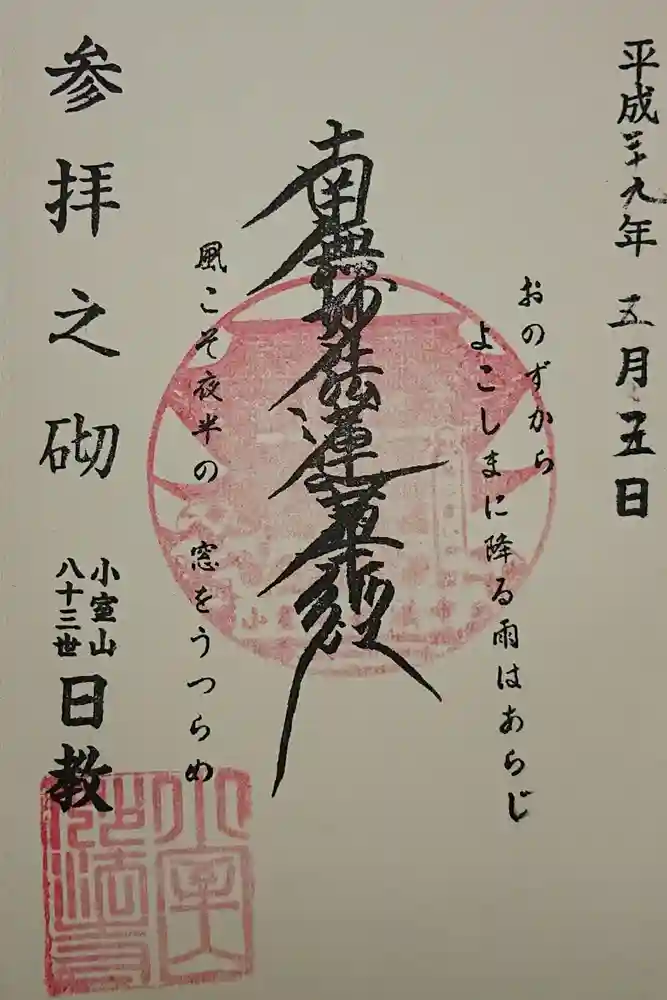 平成二十九年 五月五日
おのずから
よこしまに降る雨はあらじ
南無妙法蓮華経
風こそ夜半の 窓をうつらめ
参拝之砌
小室山
八十三世
日教
小室山
妙法寺